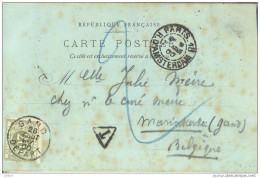 RÉPUBLIQUE FRANÇAISE
CARTE POSTALE
Ce côté est exclusivement réservé à l'adresse
R. PARIS
AMSTERDAM
M elle Julie Meire
chez Mr le curé Meire
Marinkerke (Gand)
Belgique
GAND
T